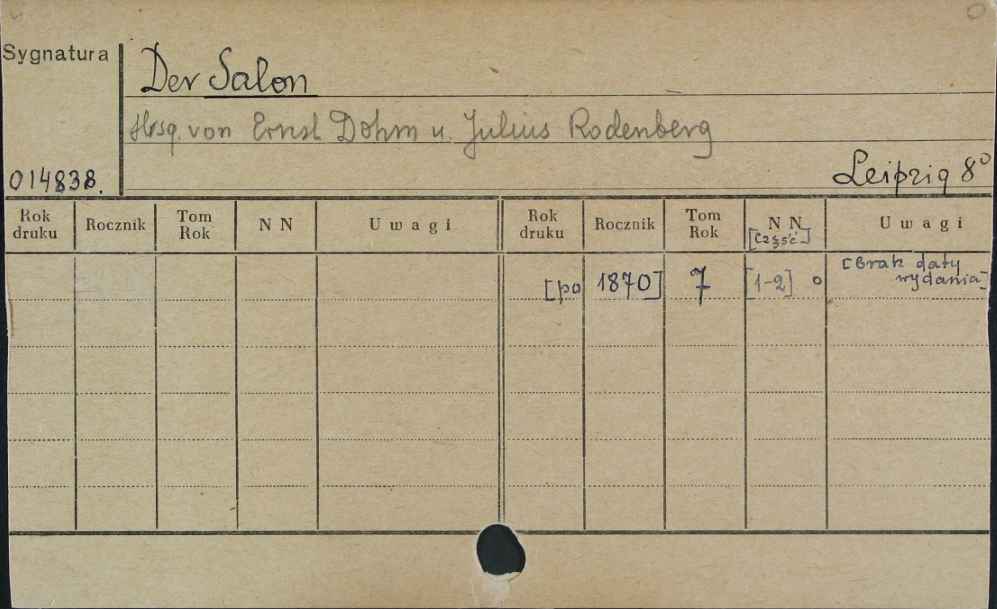 Sygnatura
Der Salon
Hrsg. von Ernst Dohm u. Julius Rodenberg
014838.
Leipzig 8°
Rok druku Rocznik Tom Rok N N U w a g i Rok druku Rocznik Tom Rok N N [część] U w a g i
[po 1870] 7 [1-2] o [Brak daty wydania]